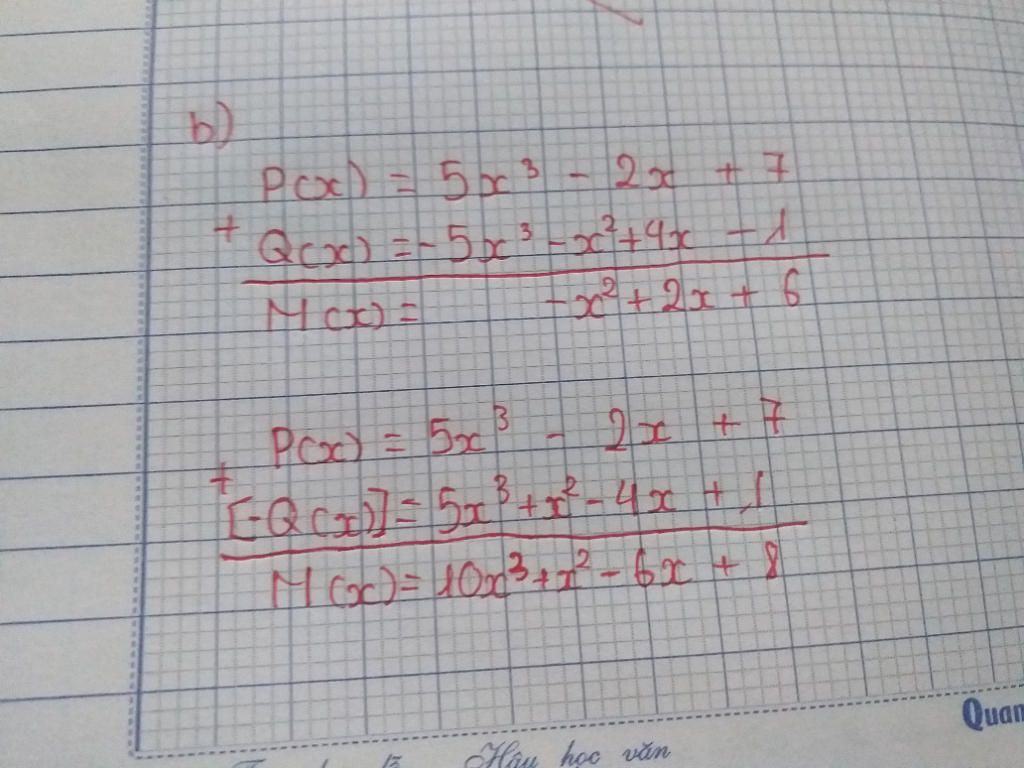 b)
P(x) = 5x³ - 2x + 7
+ Q(x) = -5x³ - x² + 4x - 1
M(x) = -x² + 2x + 6
P(x) = 5x³ - 2x + 7
+ [-Q(x)] = 5x³ + x² - 4x + 1
M(x) = 10x³ + x² - 6x + 8
Quan
Hậu học văn